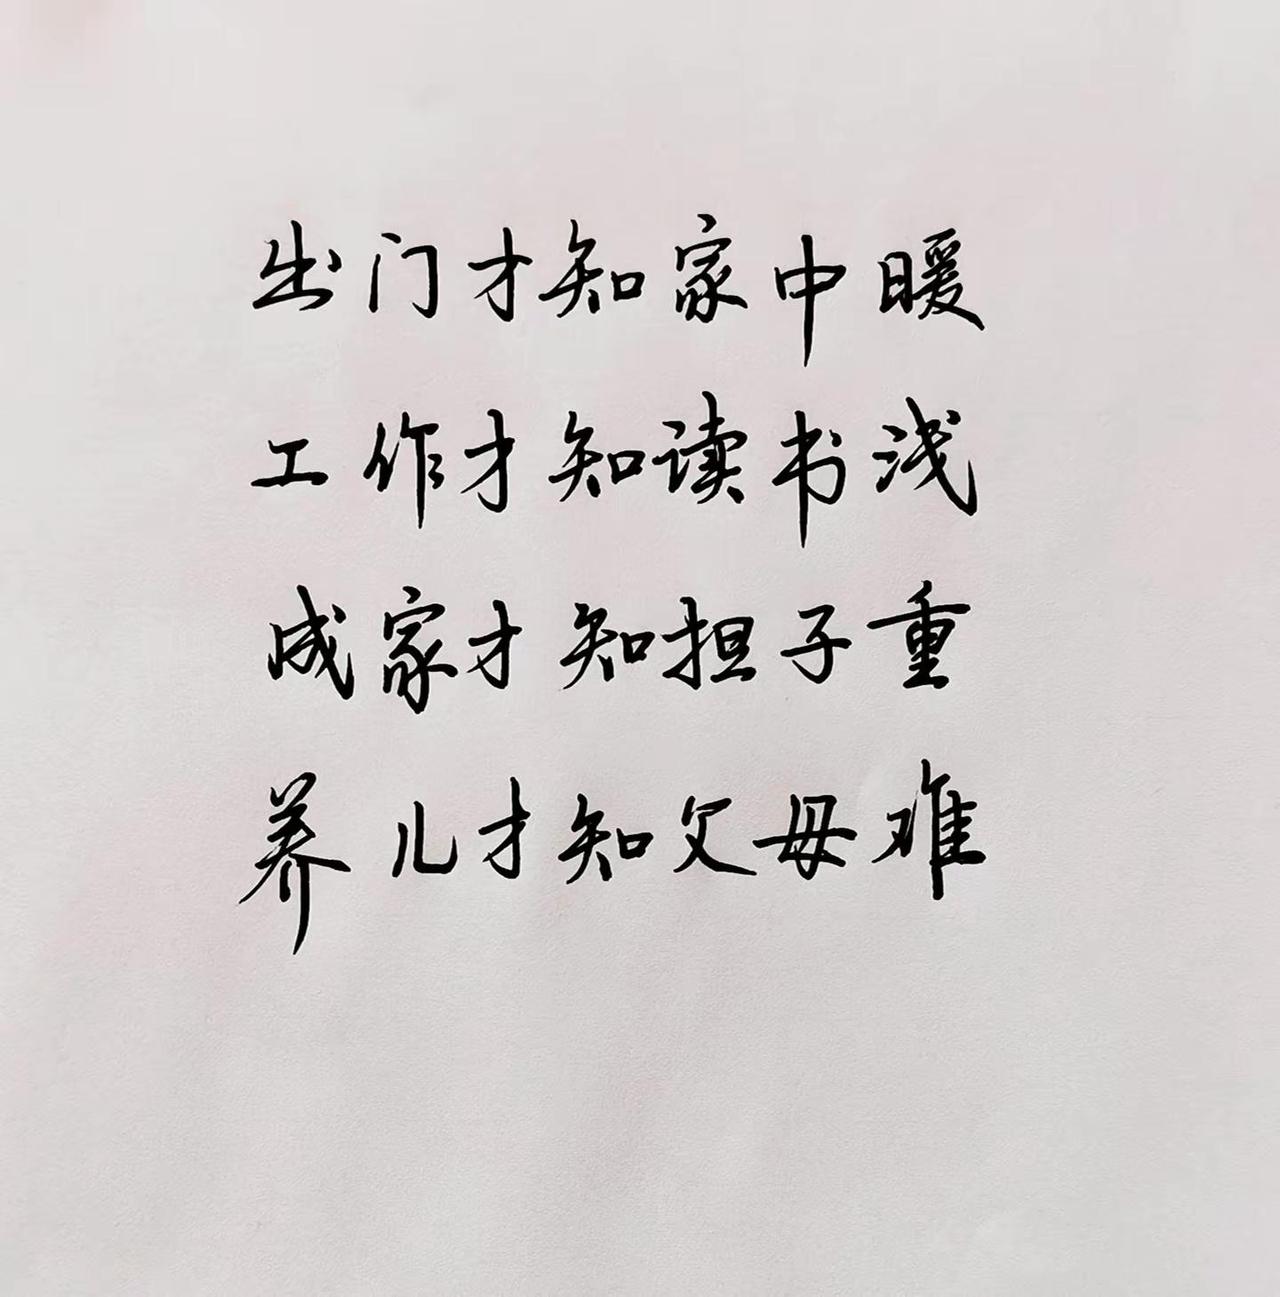 出门才知家中暖
工作才知读书浅
成家才知担子重
养儿才知父母难